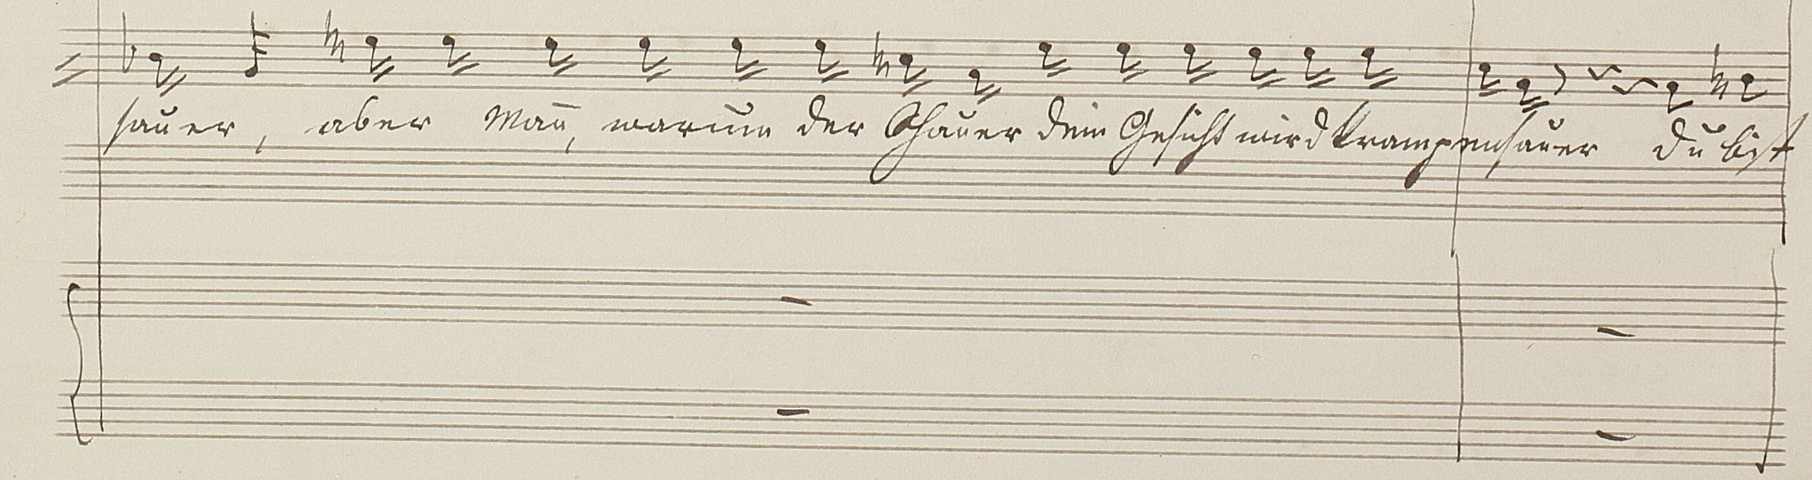 sauer, aber Mañ, warum der Schauer dein Gesicht wird krampensauer du bist